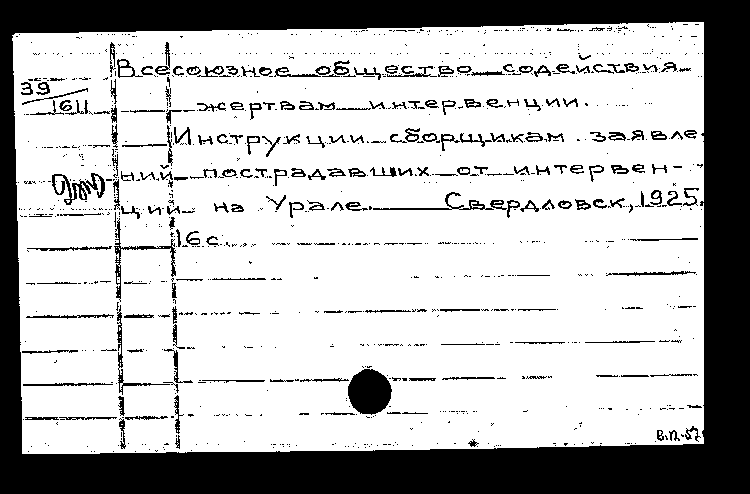 Всесоюзное общество содействия
39
1611
жертвам интервенции.
Инструкции сборщикам заявле
ний пострадавших от интервен-
ции на Урале. Свердловск, 1925.
16 с.
В.П.-57